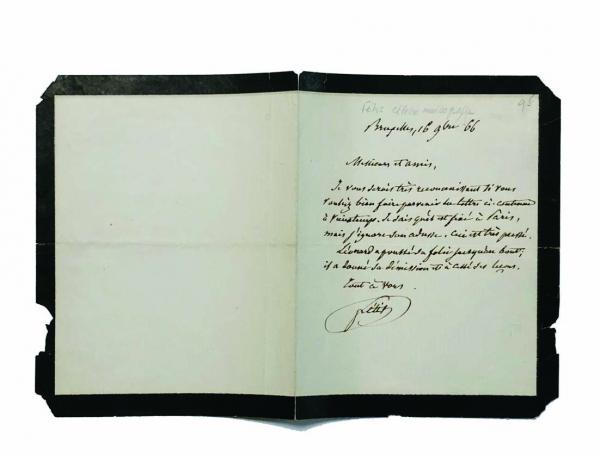 Fétis célèbre musicographe
Bruxelles, 16 9bre 66
Messieurs et amis,
Je vous serais très reconnaissant si vous
vouliez bien faire parvenir la lettre ci-contenue
à Vieuxtemps. Je sais qu'il est fixé à Paris,
mais j'ignore son adresse. Ceci est très pressé.
Léonard a poussé sa folie jusqu'au bout;
il a donné sa démission et a cessé ses leçons.
Tout à vous
Fétis